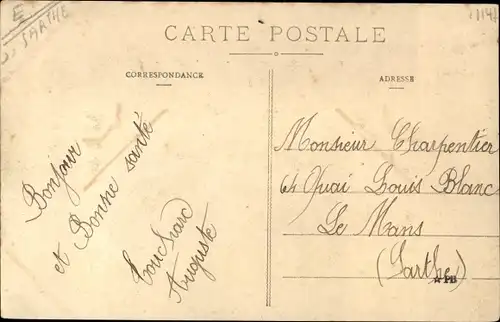 E
SARTHE
CARTE POSTALE
CORRESPONDANCE
Bonjour
et Bonne santé
Auguste
ADRESSE
Monsieur Charpentier
64 Quai Louis Blanc
Le Mans
(Sarthe)